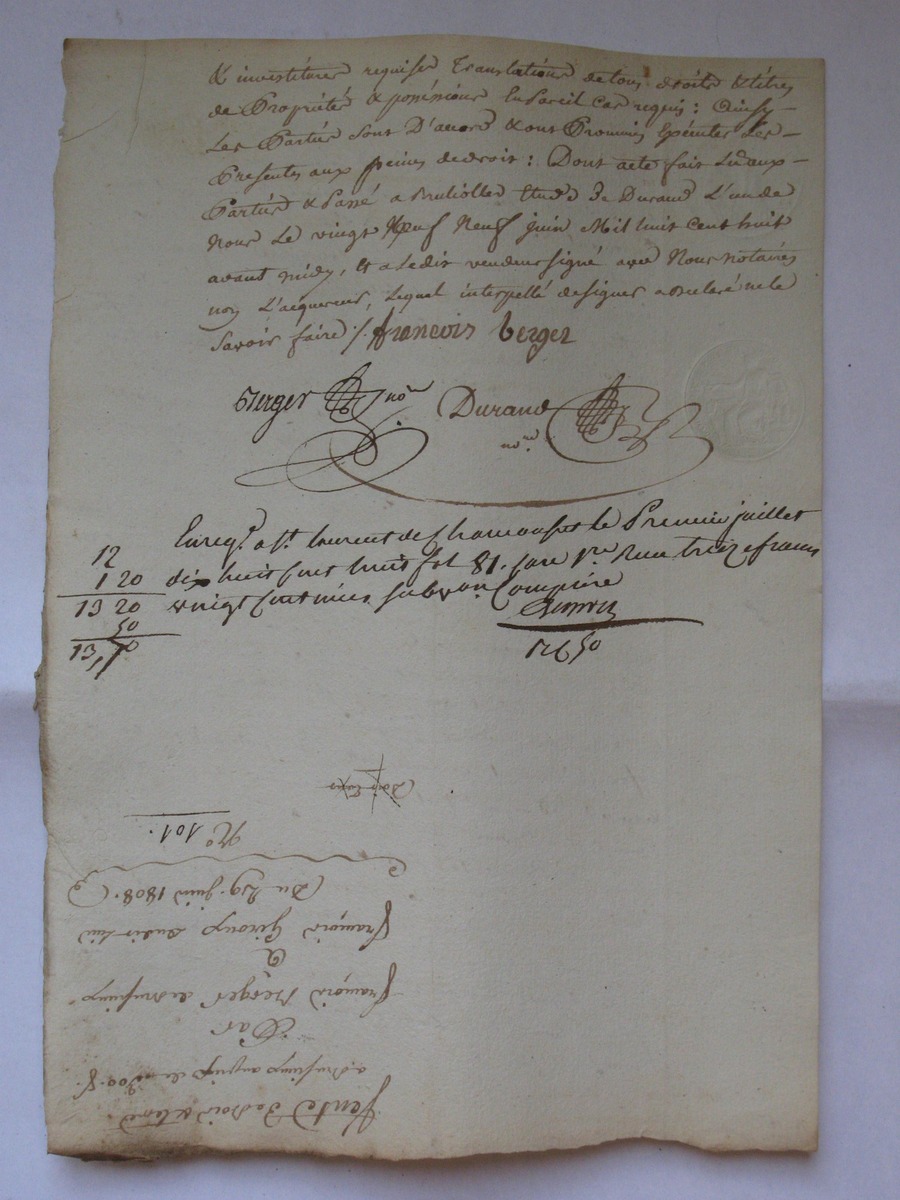 & investitures requises translations de tous droits & titres
de Propriétés & possessions En Pareil cas requis : Ainsy
Les Parties Sont D'acord & ont Promis Exécuter Les
Presentes aux peines de droit : Dont acte fait Lu aux
Parties & Passé a Etude De Durand L'un de
Nous Le vingt Neuf juin Mil huit Cent huit
avant midy, Et a Ledit vendeur signé avec Nous notaires
non L'acquereur, Lequel interpellé de signer a declaré ne le
Savoir faire /. françois berger
Berger nore Durand
nore
Enregé a St. Laurent de Chamousset le Premier juillet
dix huit cent huit fol 81. case 1re Reçu treize francs
vingt centimes subvon Comprise
12
1 20
13 20
50
13,70
12 50
Vente de bois & terre
300
Par
françois Berger
a
françois Giroux dudit lieu
Du 29. juin 1808.
No 101.